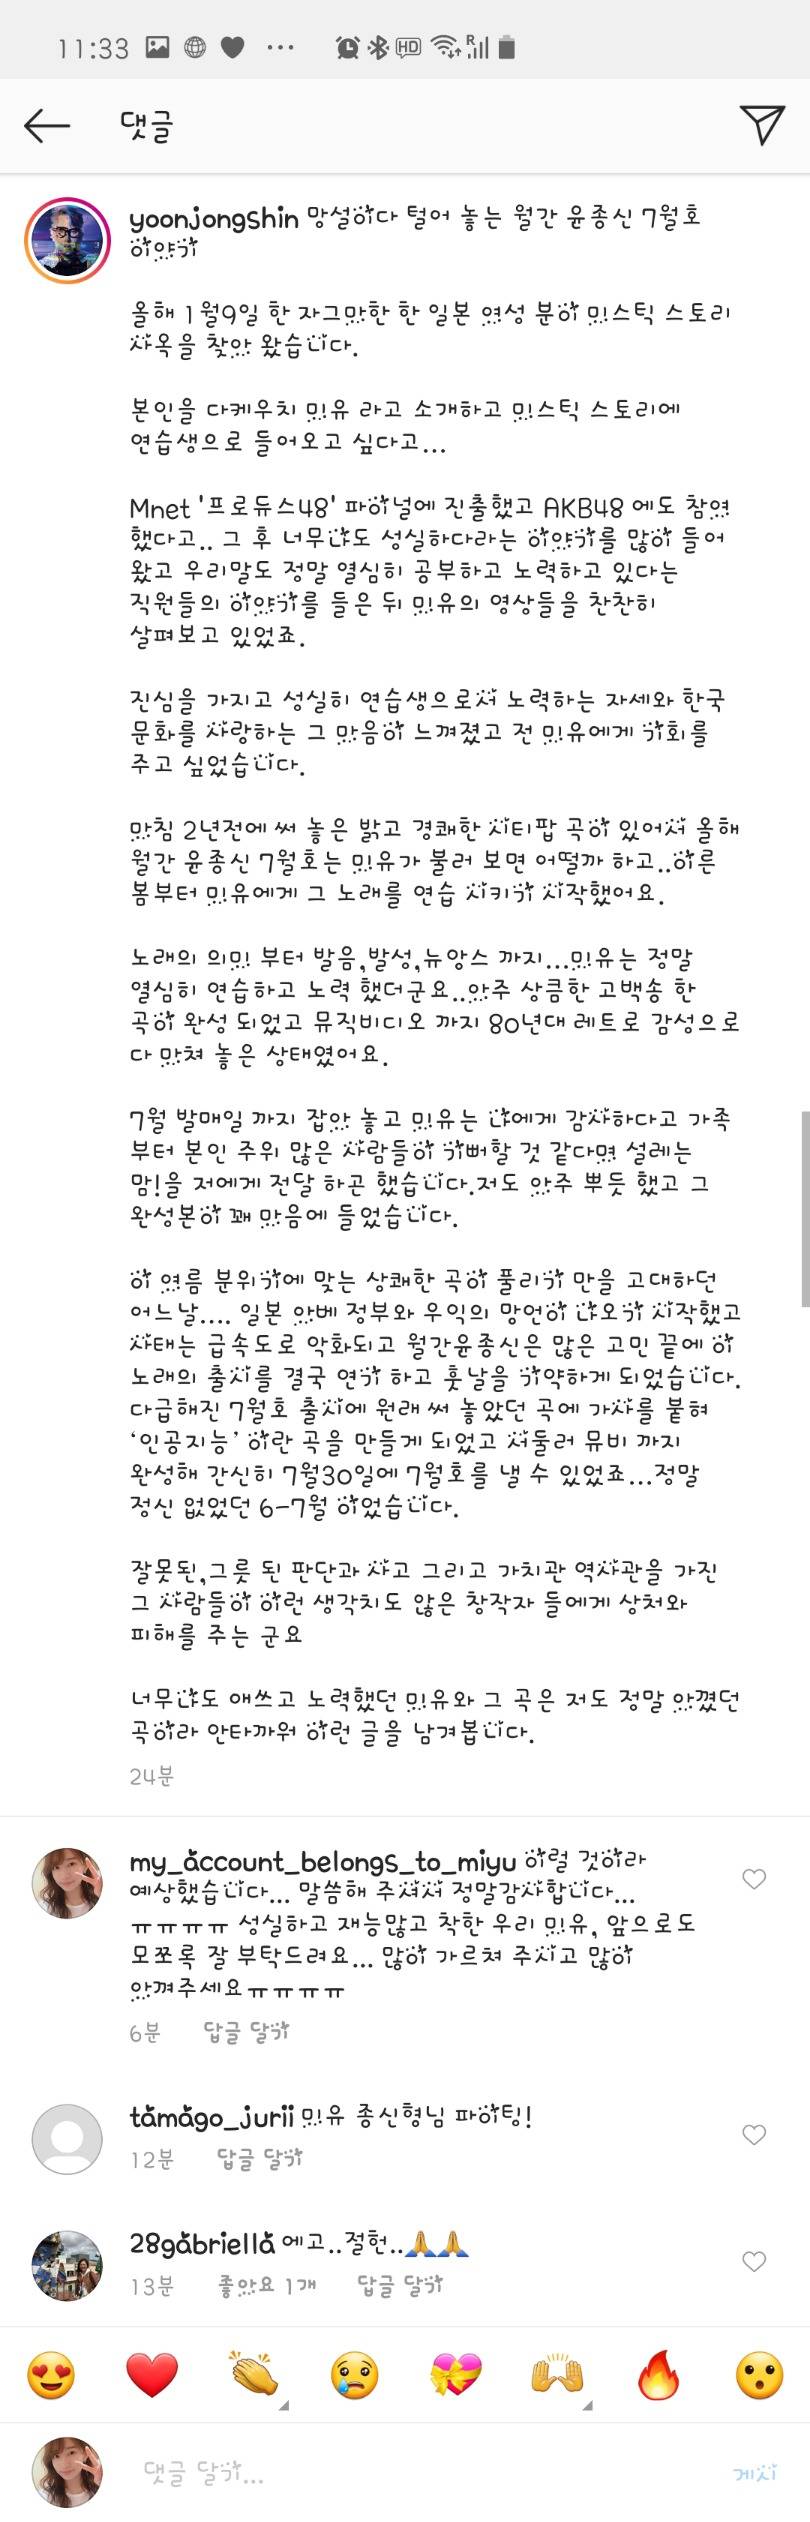 11:33
댓글
yoonjongshin 망설이다 털어 놓는 월간 윤종신 7월호
이야기
올해 1월9일 한 자그만한 한 일본 여성 분이 미스틱 스토리
사옥을 찾아 왔습니다.
본인을 다케우치 미유 라고 소개하고 미스틱 스토리에
연습생으로 들어오고 싶다고...
Mnet '프로듀스48' 파이널에 진출했고 AKB48 에도 참여
했다고.. 그 후 너무나도 성실하다라는 이야기를 많이 들어
왔고 우리말도 정말 열심히 공부하고 노력하고 있다는
직원들의 이야기를 들은 뒤 미유의 영상들을 찬찬히
살펴보고 있었죠.
진심을 가지고 성실히 연습생으로서 노력하는 자세와 한국
문화를 사랑하는 그 마음이 느껴졌고 전 미유에게 기회를
주고 싶었습니다.
마침 2년전에 써 놓은 밝고 경쾌한 시티팝 곡이 있어서 올해
월간 윤종신 7월호는 미유가 불러 보면 어떨까 하고..이른
봄부터 미유에게 그 노래를 연습 시키기 시작했어요.
노래의 의미 부터 발음,발성,뉴앙스 까지...미유는 정말
열심히 연습하고 노력 했더군요..아주 상큼한 고백송 한
곡이 완성 되었고 뮤직비디오 까지 80년대 레트로 감성으로
다 마쳐 놓은 상태였어요.
7월 발매일 까지 잡아 놓고 미유는 나에게 감사하다고 가족
부터 본인 주위 많은 사람들이 기뻐할 것 같다며 설레는
맘!을 저에게 전달 하곤 했습니다.저도 아주 뿌듯 했고 그
완성본이 꽤 마음에 들었습니다.
이 여름 분위기에 맞는 상쾌한 곡이 풀리기 만을 고대하던
어느날.... 일본 아베 정부와 우익의 망언이 나오기 시작했고
사태는 급속도로 악화되고 월간윤종신은 많은 고민 끝에 이
노래의 출시를 결국 연기 하고 훗날을 기약하게 되었습니다.
다급해진 7월호 출시에 원래 써 놓았던 곡에 가사를 붙혀
‘인공지능’ 이란 곡을 만들게 되었고 서둘러 뮤비 까지
완성해 간신히 7월30일에 7월호를 낼 수 있었죠...정말
정신 없었던 6-7월 이었습니다.
잘못된,그릇 된 판단과 사고 그리고 가치관 역사관을 가진
그 사람들이 이런 생각치도 않은 창작자 들에게 상처와
피해를 주는 군요
너무나도 애쓰고 노력했던 미유와 그 곡은 저도 정말 아꼈던
곡이라 안타까워 이런 글을 남겨봅니다.
24분
my_account_belongs_to_miyu 이럴 것이라
예상했습니다... 말씀해 주셔서 정말감사합니다...
ㅠㅠㅠㅠ 성실하고 재능많고 착한 우리 미유, 앞으로도
모쪼록 잘 부탁드려요... 많이 가르쳐 주시고 많이
아껴주세요ㅠㅠㅠㅠ
6분 답글 달기
tamago_jurii 미유 종신형님 파이팅!
12분 답글 달기
28gabriella 에고..절헌..🙏🙏
13분 좋아요 1개 답글 달기
댓글 달기... 게시